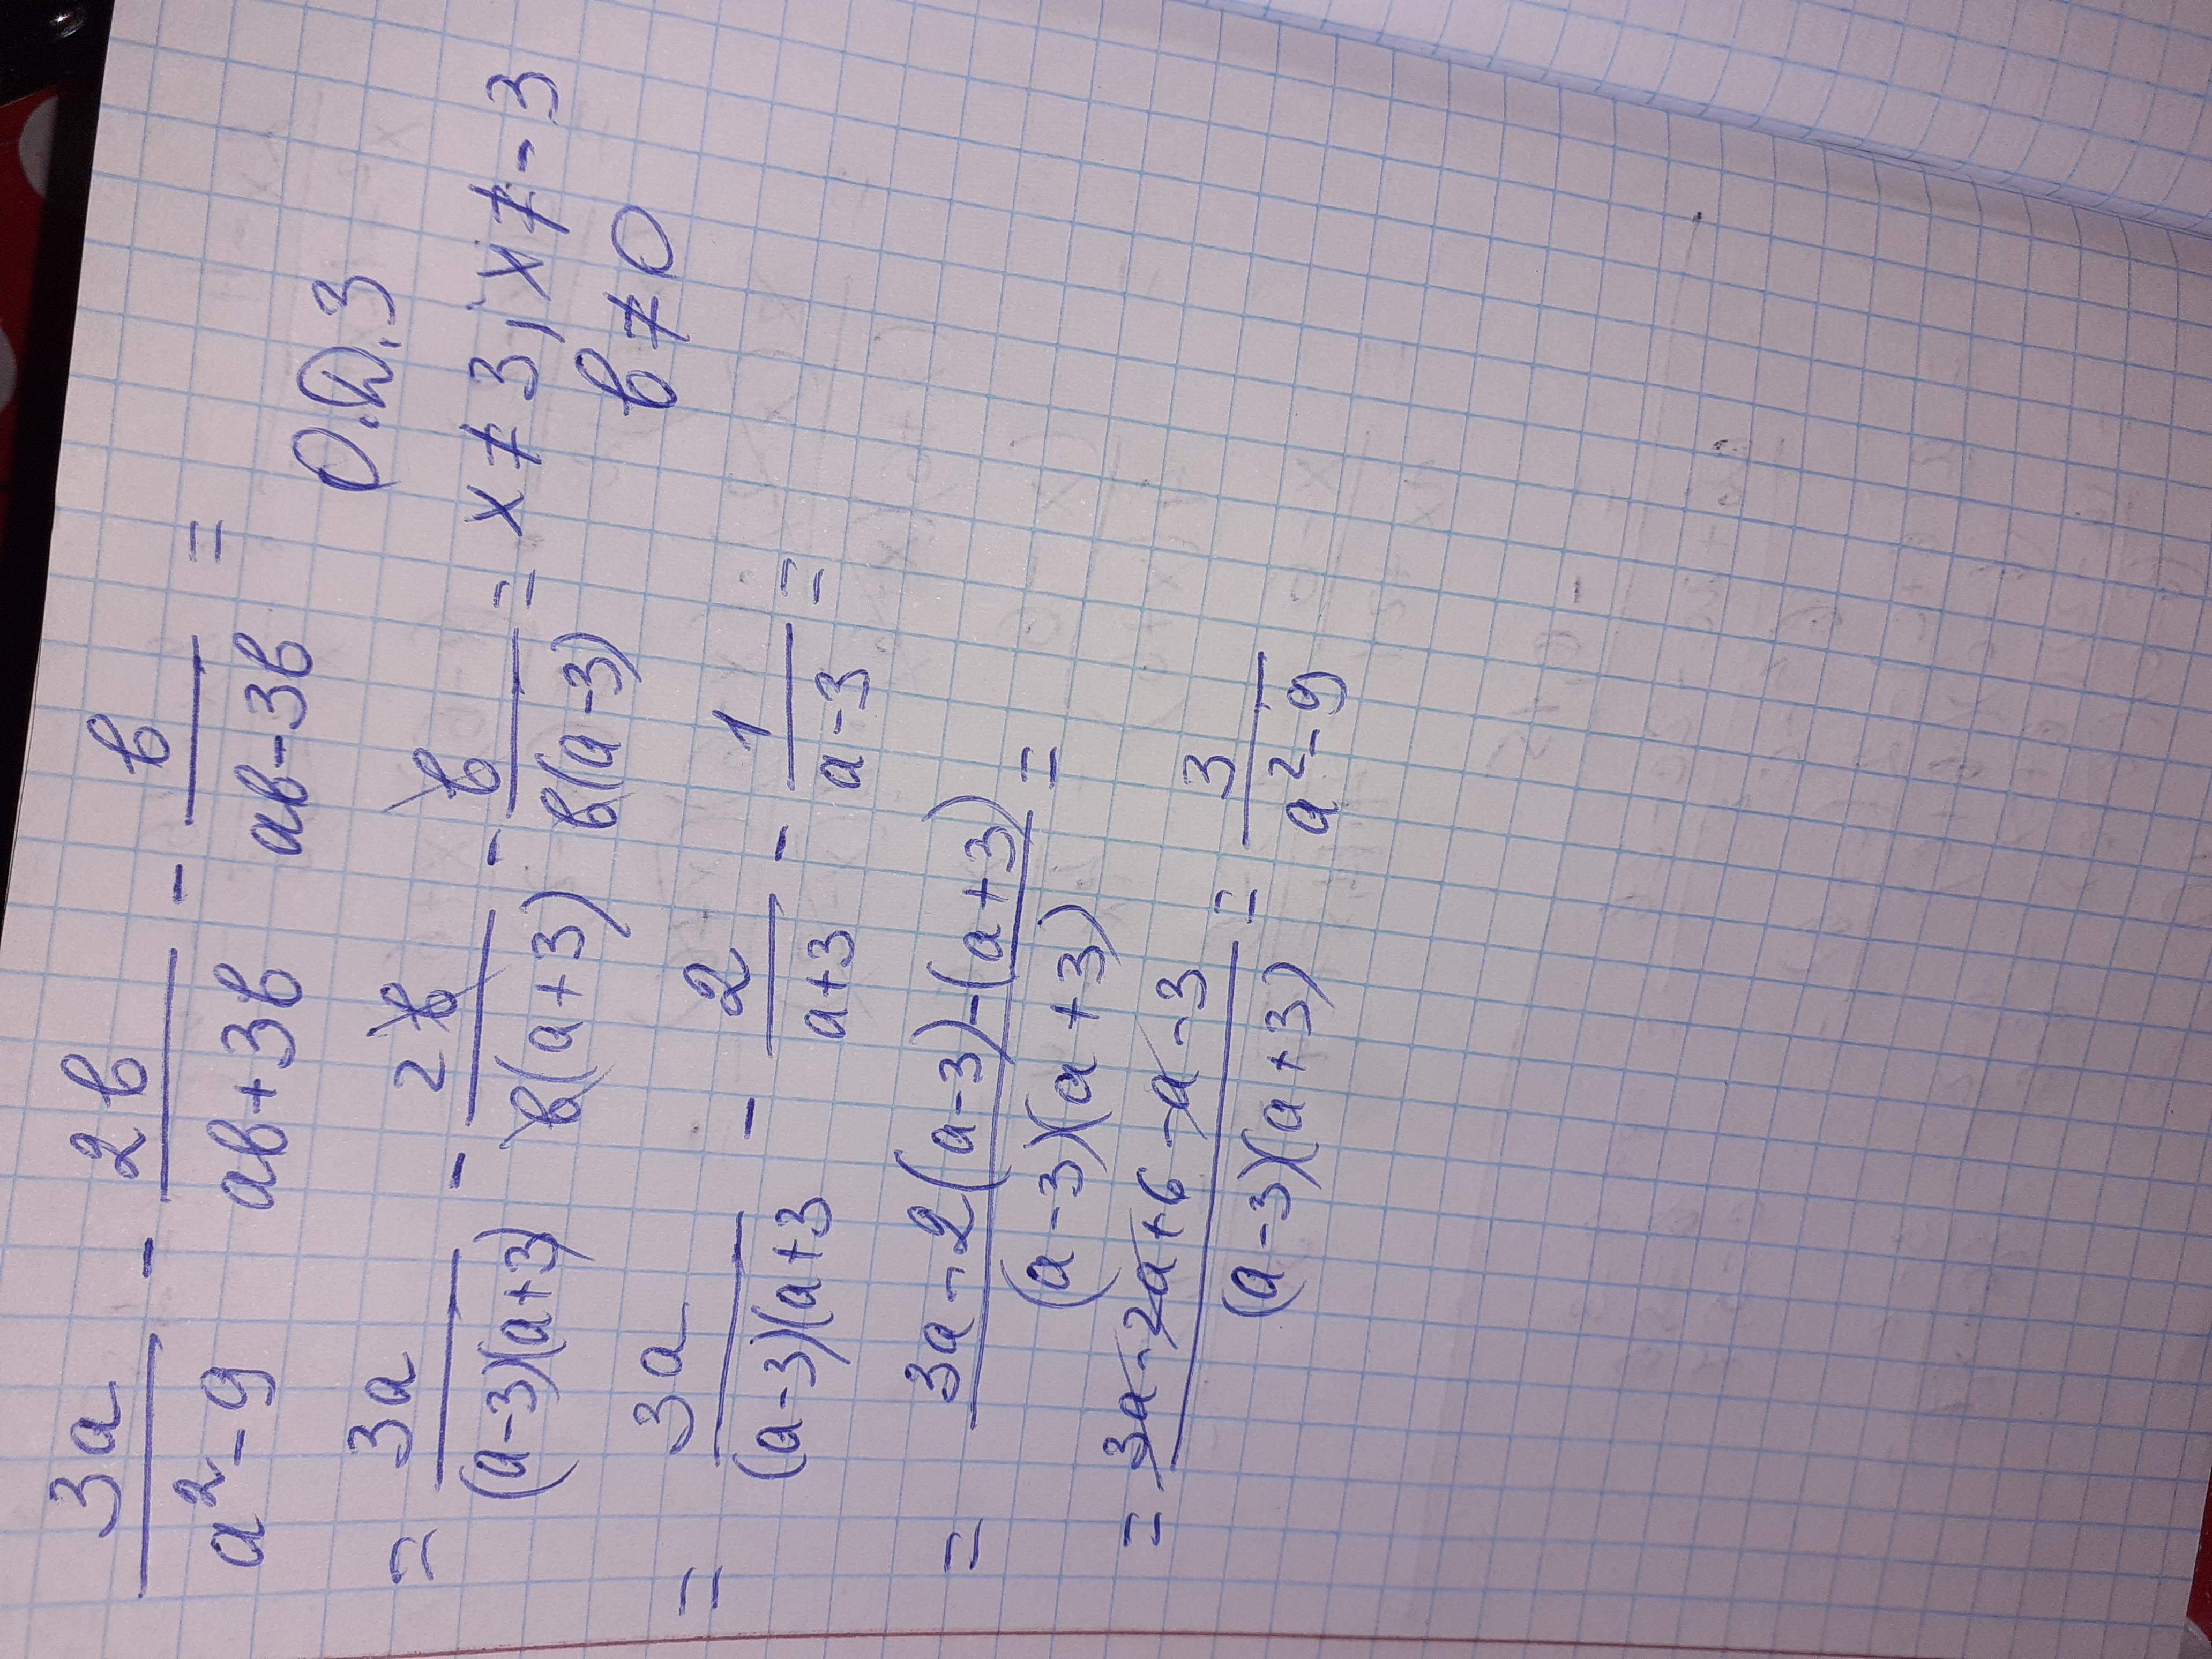 3a/(a²-9) - 2в/(ав+3в) - в/(ав-3в) =
О.Д.З
= 3a/((a-3)(a+3)) - 2в/(в(a+3)) - в/(в(a-3)) =
x≠3; x≠-3
в≠0
= 3a/((a-3)(a+3) - 2/(a+3) - 1/(a-3) =
= (3a-2(a-3)-(a+3))/((a-3)(a+3)) =
= (3a-2a+6-a-3)/((a-3)(a+3)) = 3/(a²-9)